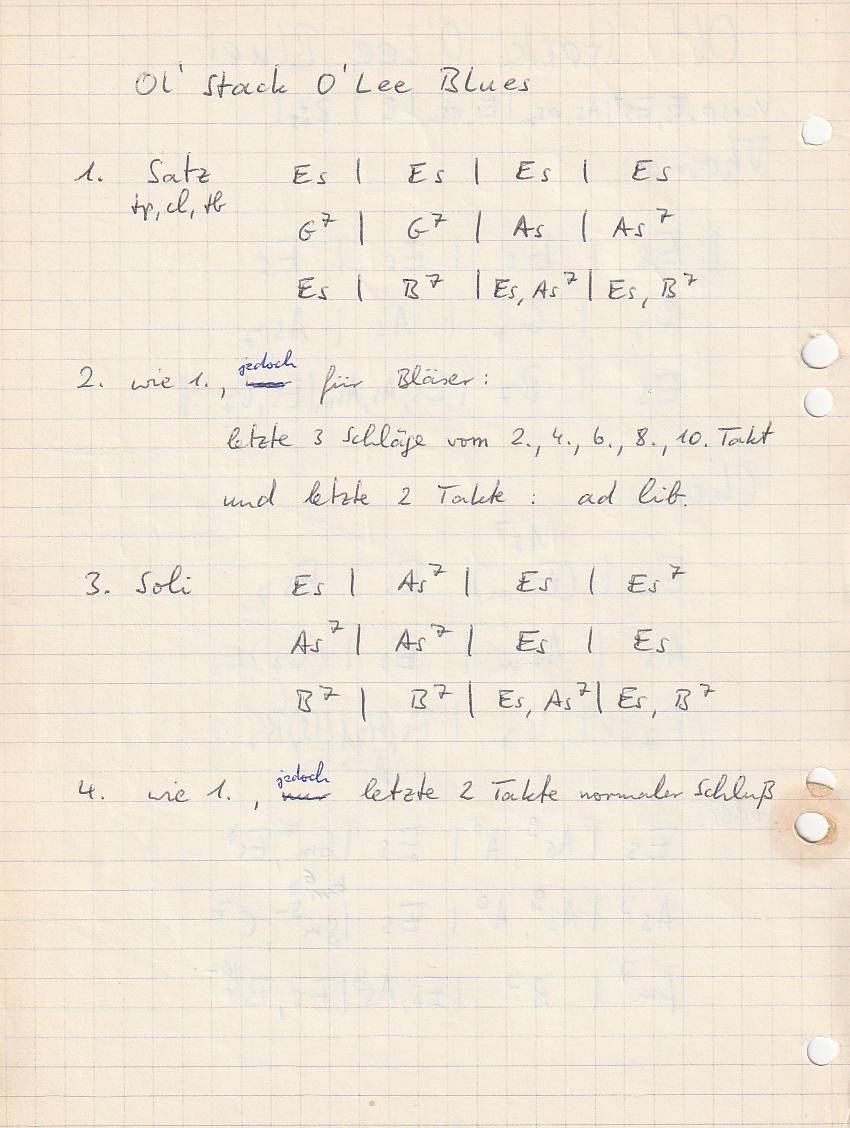 Ol' Stack O'Lee Blues
1. Satz Es | Es | Es | Es
tp, cl, tb G⁷ | G⁷ | As | As⁷
Es | B⁷ | Es, As⁷ | Es, B⁷
2. wie 1., jedoch für Bläser:
letzte 3 Schläge vom 2., 4., 6., 8., 10. Takt
und letzte 2 Takte : ad lib.
3. Soli Es | As⁷ | Es | Es⁷
As⁷ | As⁷ | Es | Es
B⁷ | B⁷ | Es, As⁷ | Es, B⁷
4. wie 1., jedoch letzte 2 Takte normaler Schluß